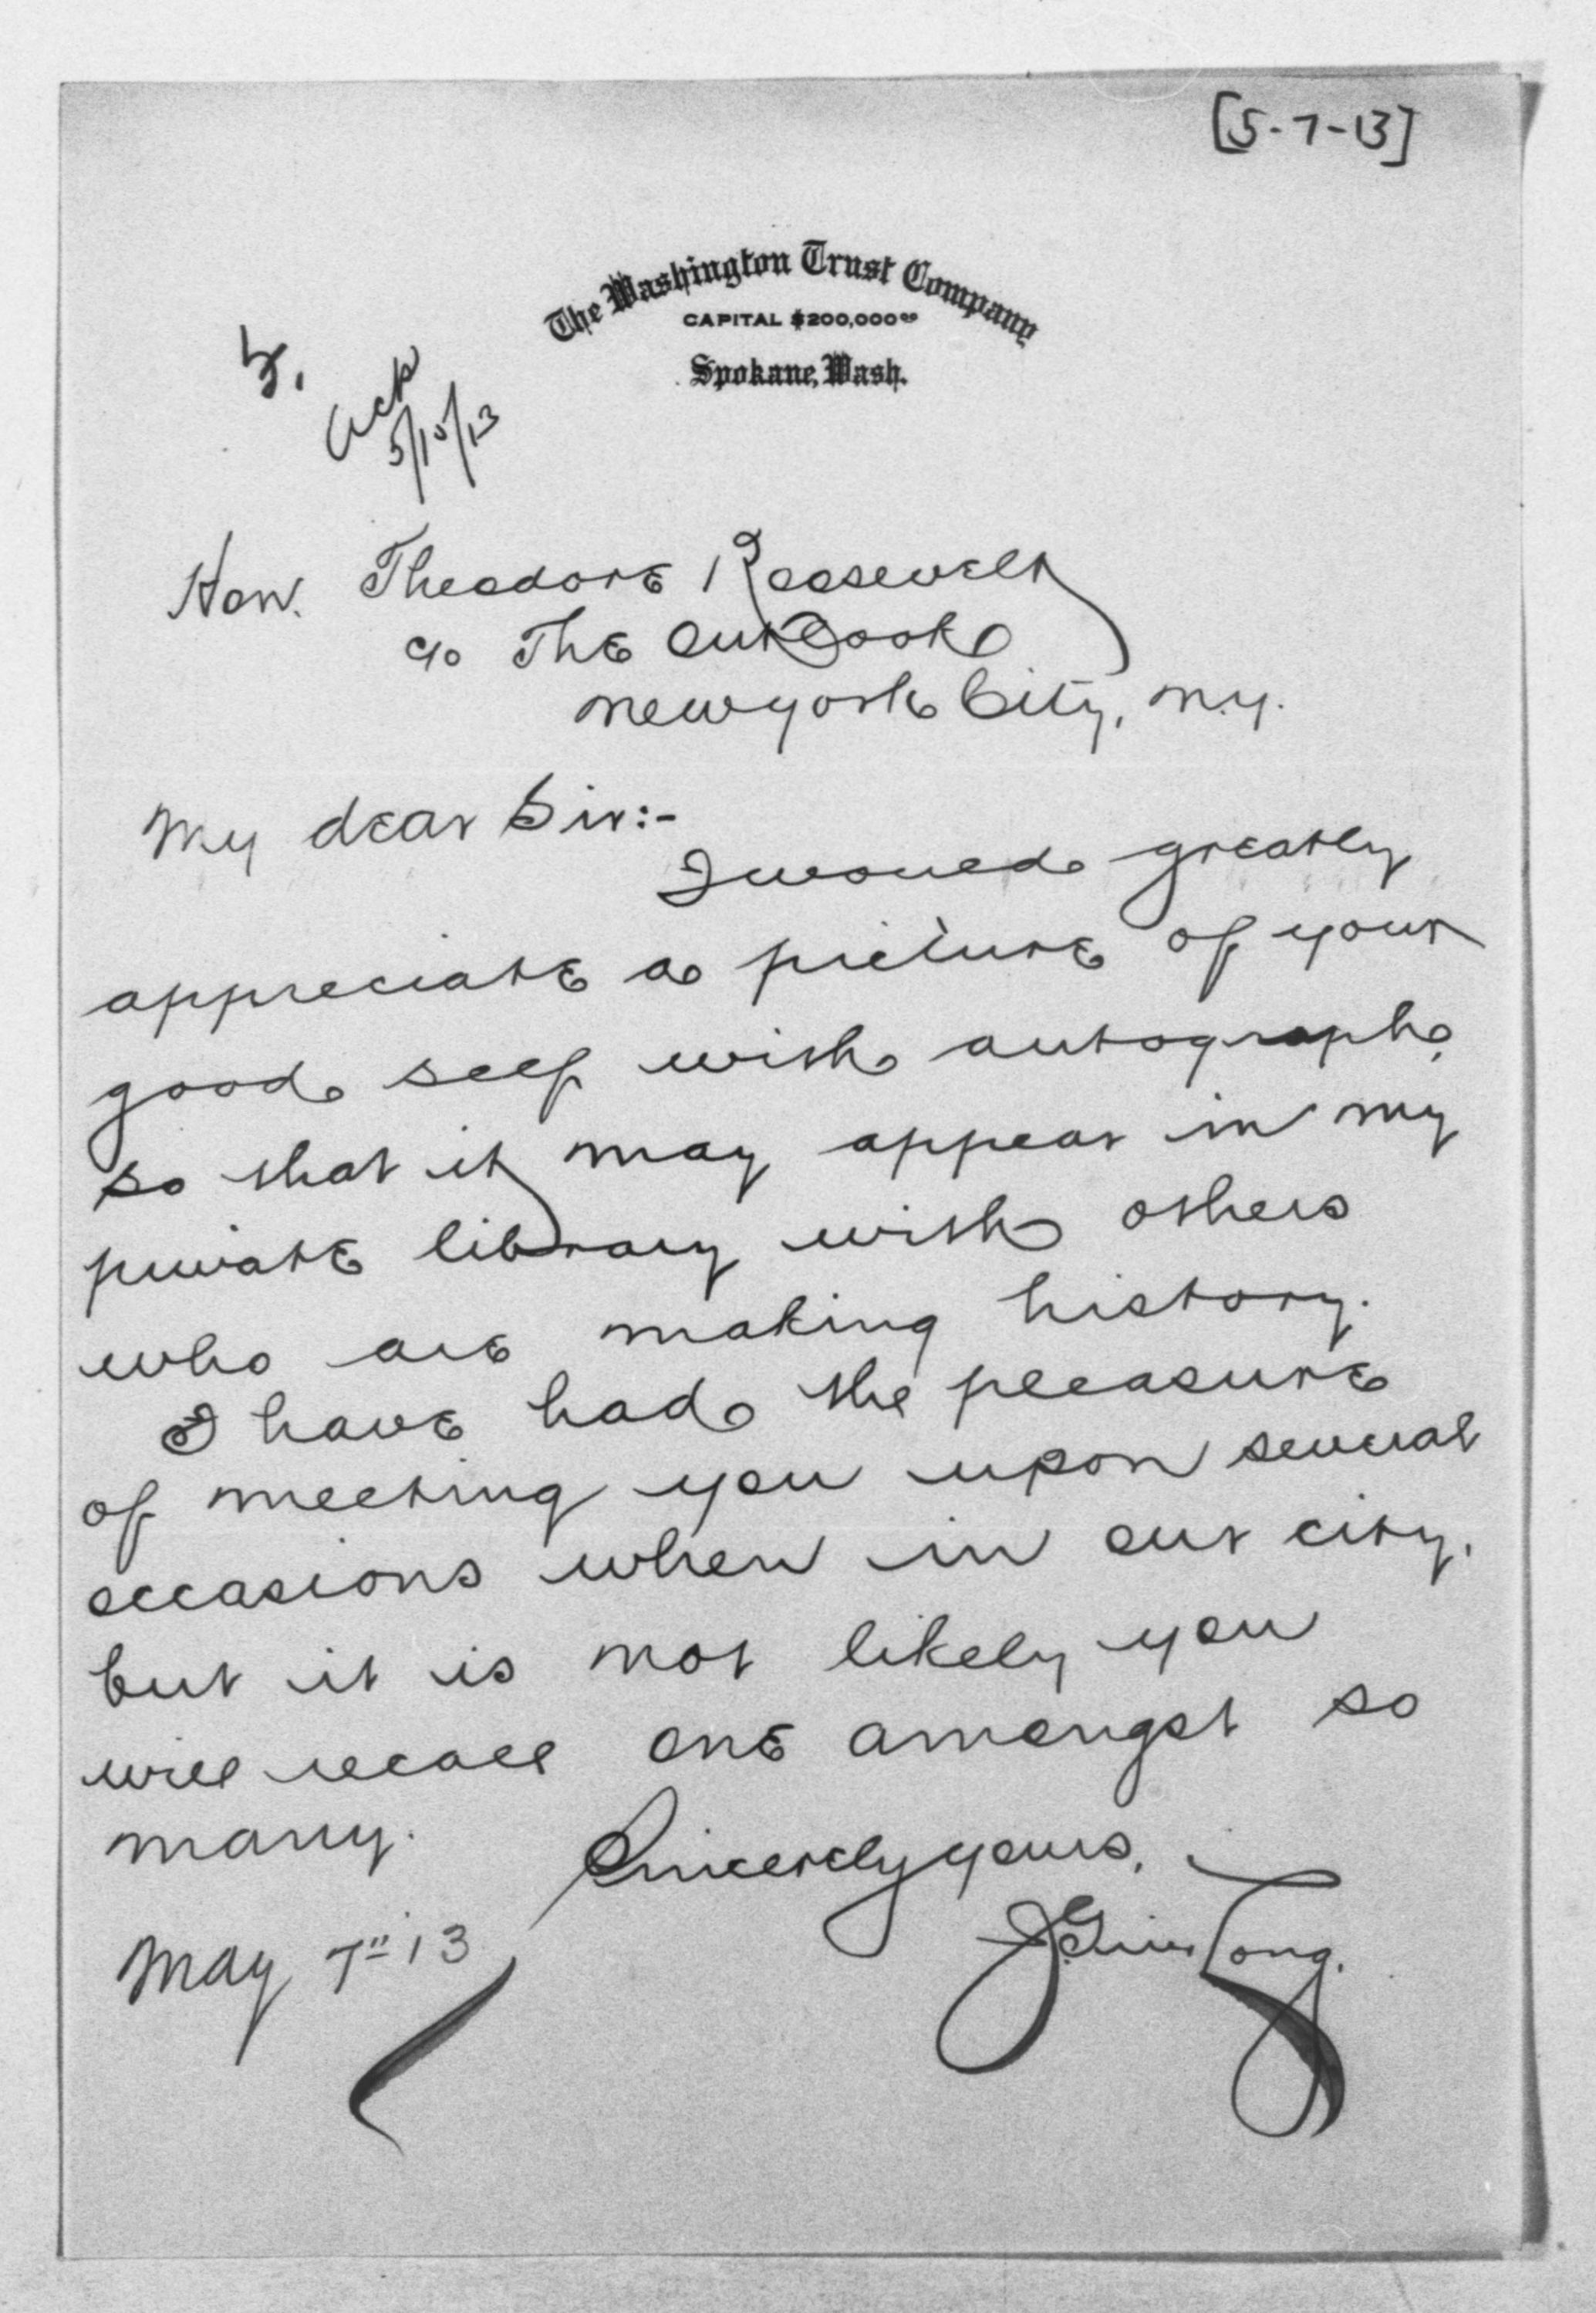 [5-7-13]
The Washington Trust Company
CAPITAL $200,000.00
Spokane, Wash.
Ack
5/15/13
Hon. Theodore Roosevelt
c/o The Outlook
New York City, N.Y.
My dear Sir:-
I would greatly
appreciate a picture of your
good self with autograph,
so that it may appear in my
private library with others
who are making history.
I have had the pleasure
of meeting you upon several
occasions when in our city,
but it is not likely you
will recall one amongst so
many.
Sincerely yours,
May 7" 13